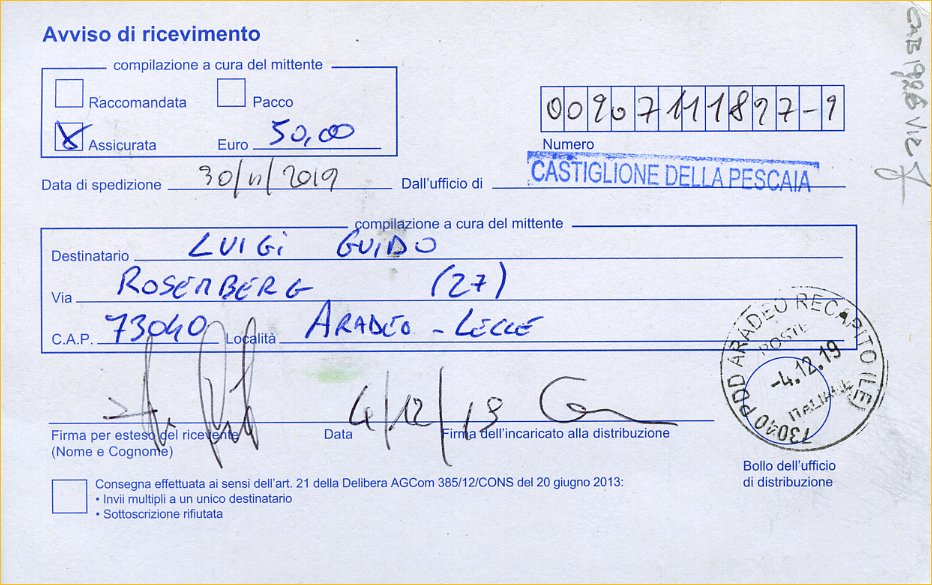 Avviso di ricevimento
compilazione a cura del mittente
Raccomandata Pacco
Assicurata Euro 50,00
00907111897-9
Numero
Data di spedizione 30/11/2019 Dall'ufficio di CASTIGLIONE DELLA PESCAIA
compilazione a cura del mittente
Destinatario LUIGI GUIDO
Via ROSEMBERG (27)
C.A.P. 73040 Località ARADEO - LECCE
4/12/19
Firma per esteso del ricevente Data Firma dell'incaricato alla distribuzione
(Nome e Cognome)
73040 PDD ARADEO RECAPITO (LE)
POSTE
-4.12.19
ITALIANE
Bollo dell'ufficio
di distribuzione
Consegna effettuata ai sensi dell'art. 21 della Delibera AGCom 385/12/CONS del 20 giugno 2013:
• Invii multipli a un unico destinatario
• Sottoscrizione rifiutata